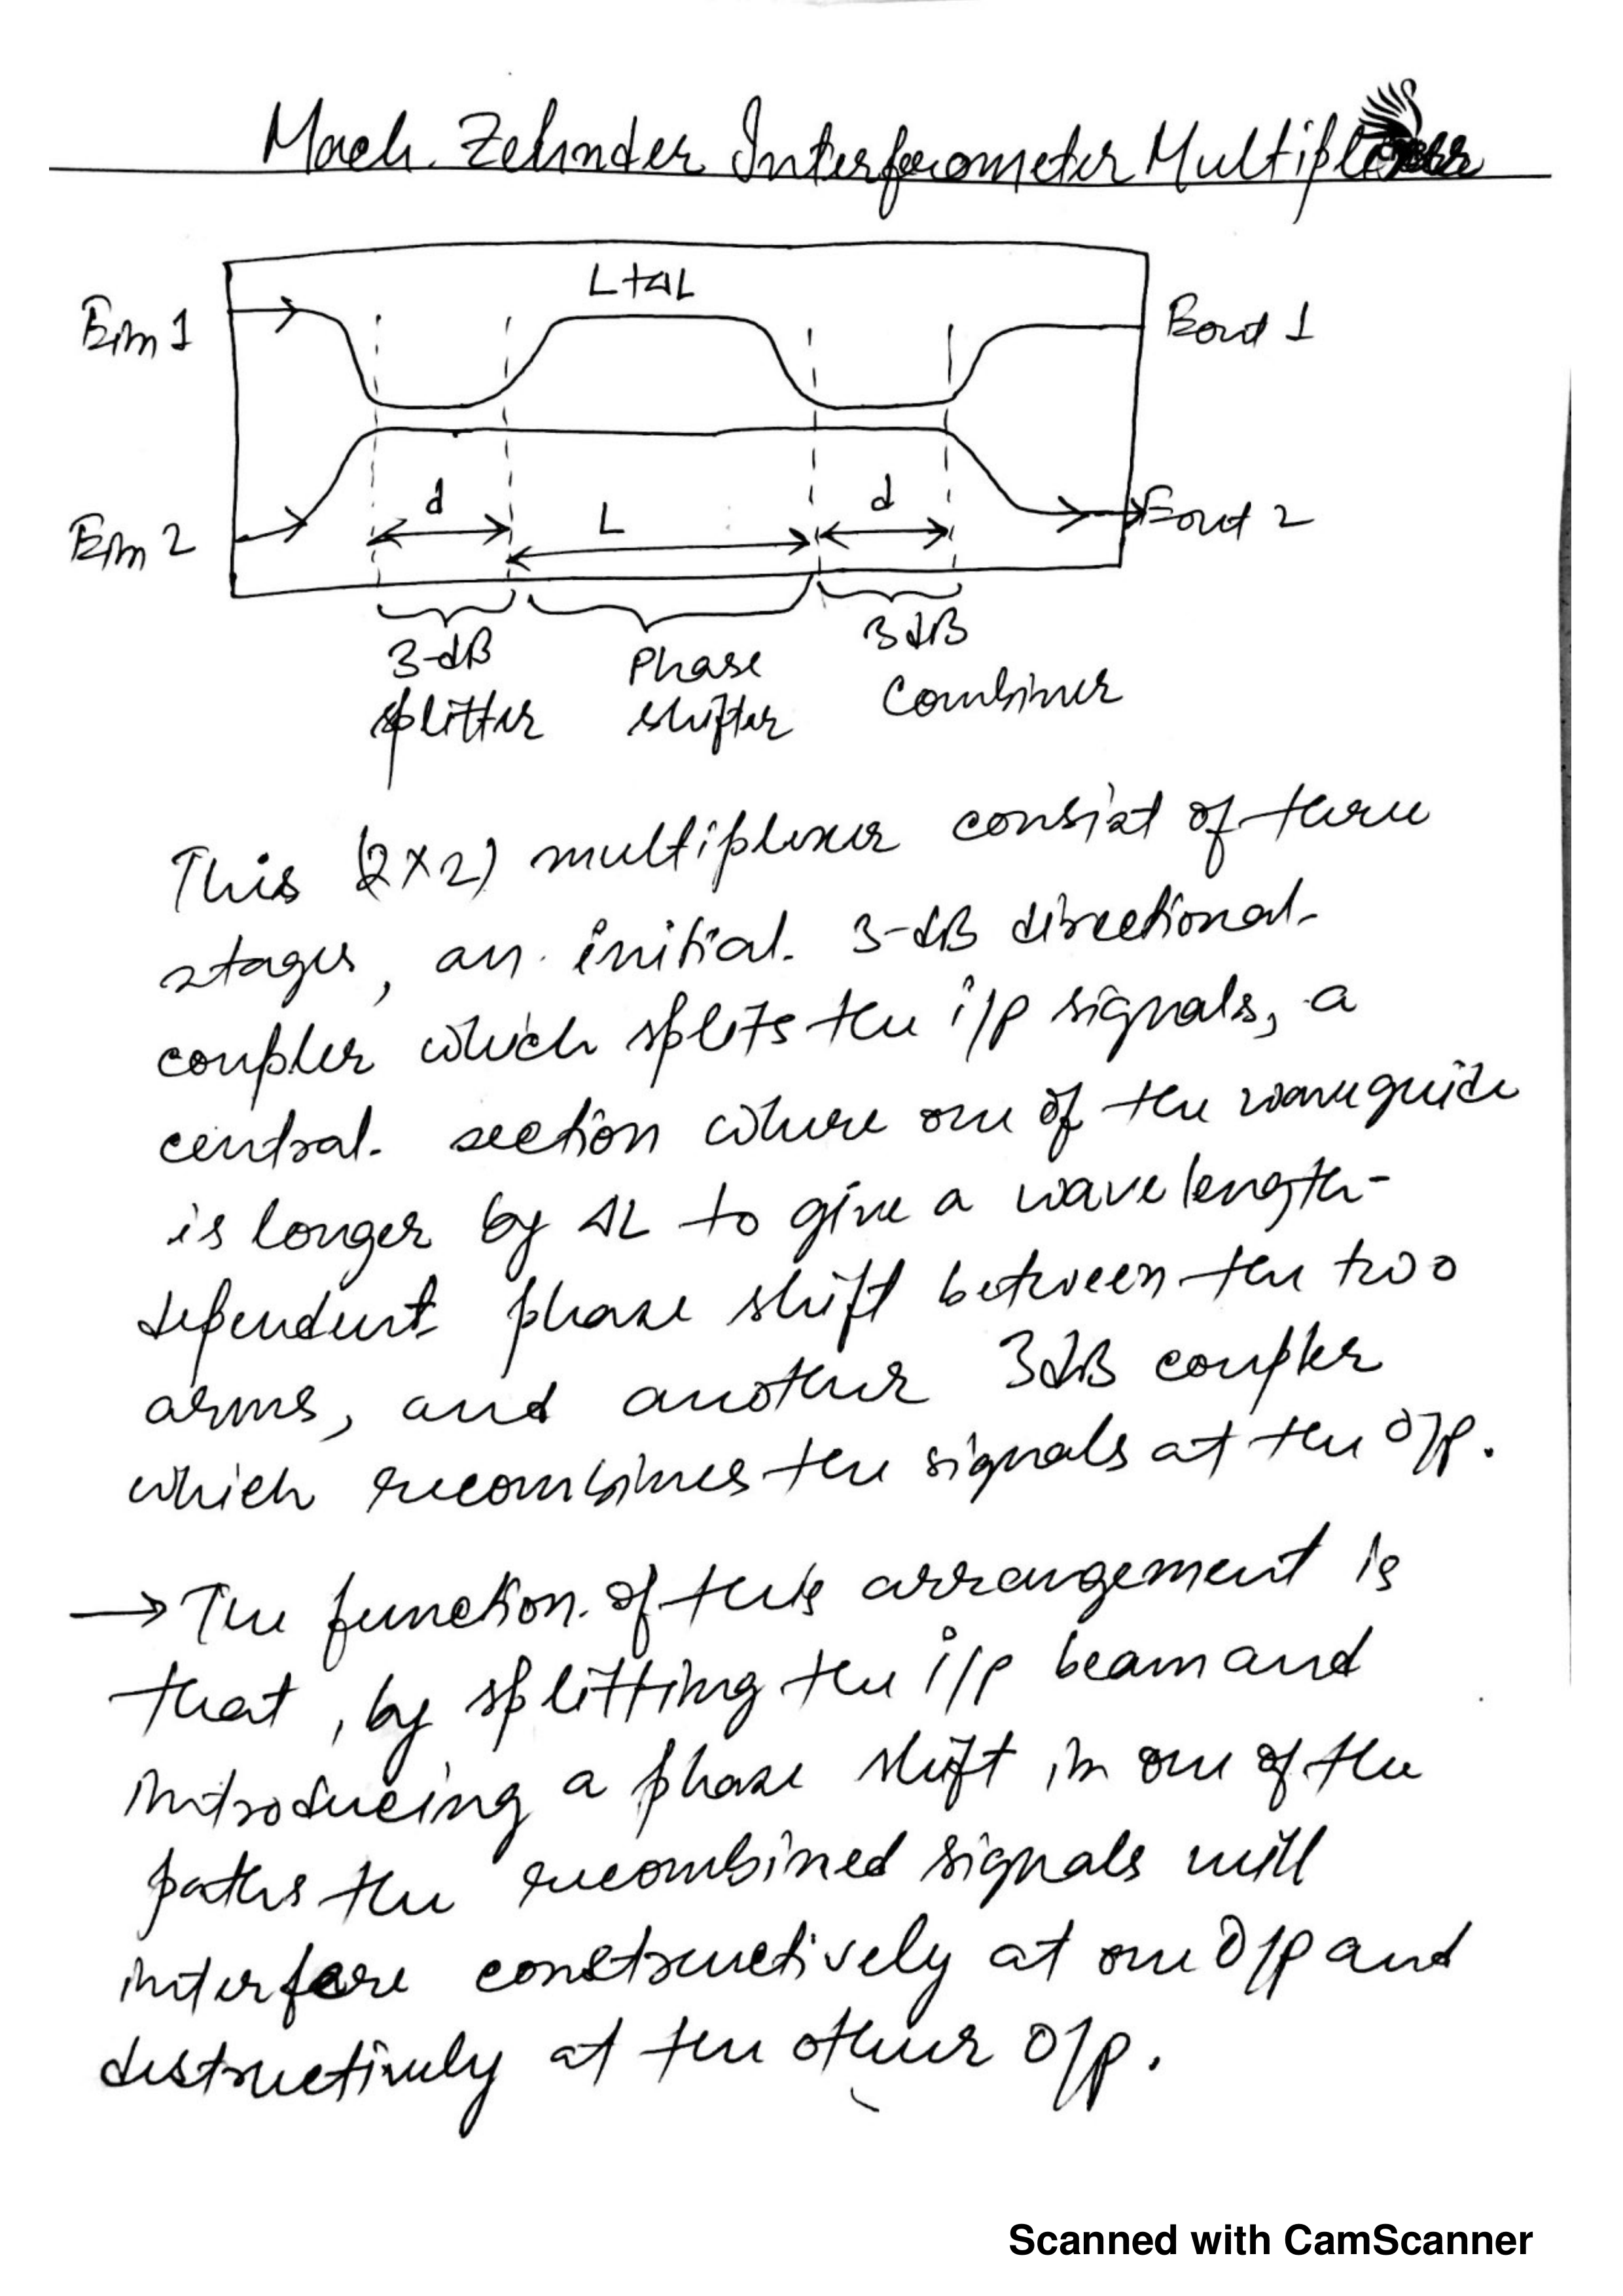 Mach. Zehnder Interferometer Multiplexers
L+ΔL
Ein 1
Eout 1
d
L
d
Ein 2
Eout 2
3-dB
splitter
Phase
shifter
3dB
Combiner
This (2×2) multiplexer consist of three
stages, an initial. 3-dB directional-
coupler which splits the i/p signals, a
central. section where one of the waveguide
is longer by ΔL to give a wavelength-
dependent phase shift between the two
arms, and another 3dB coupler
which recombines the signals at the o/p.
→ The function of this arrangement is
that, by splitting the i/p beam and
introducing a phase shift in one of the
paths the recombined signals will
interfere constructively at one O/p and
destructively at the other O/p.
Scanned with CamScanner